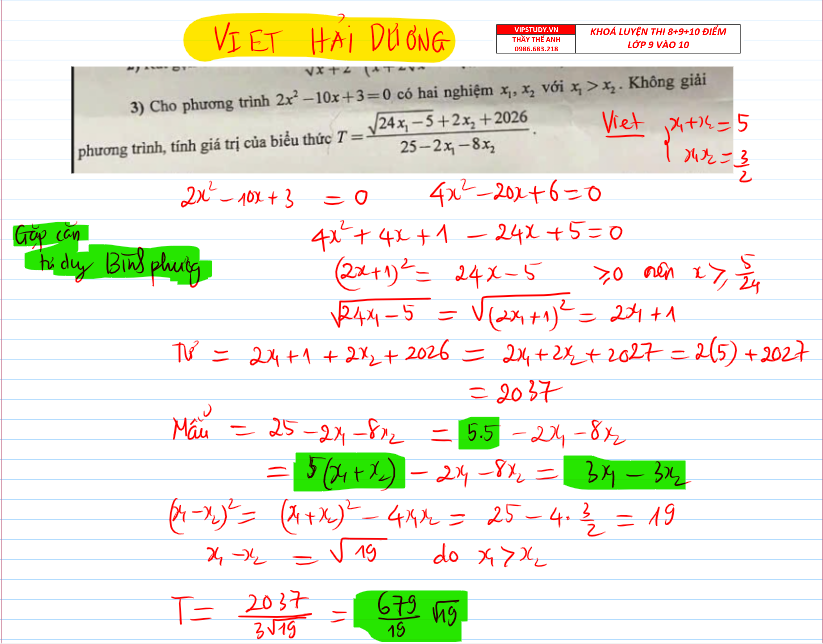 VIET HẢI DƯƠNG
VIPSTUDY.VN
THẦY THẾ ANH
0986.683.218
KHOÁ LUYỆN THI 8+9+10 ĐIỂM
LỚP 9 VÀO 10
3) Cho phương trình 2x² − 10x + 3 = 0 có hai nghiệm x₁, x₂ với x₁ > x₂. Không giải
phương trình, tính giá trị của biểu thức T = (√(24x₁ − 5) + 2x₂ + 2026)/(25 − 2x₁ − 8x₂).
Viet { x₁ + x₂ = 5
x₁x₂ = 3/2
2x² − 10x + 3 = 0 4x² − 20x + 6 = 0
Gặp căn
tư duy Bình phương
4x² + 4x + 1 − 24x + 5 = 0
(2x+1)² = 24x − 5 ≥ 0 nên x ≥ 5/24
√(24x₁ − 5) = √((2x₁ + 1)²) = 2x₁ + 1
Tử = 2x₁ + 1 + 2x₂ + 2026 = 2x₁ + 2x₂ + 2027 = 2(5) + 2027
= 2037
Mẫu = 25 − 2x₁ − 8x₂ = 5.5 − 2x₁ − 8x₂
= 5(x₁ + x₂) − 2x₁ − 8x₂ = 3x₁ − 3x₂
(x₁ − x₂)² = (x₁ + x₂)² − 4x₁x₂ = 25 − 4·3/2 = 19
x₁ − x₂ = √19 do x₁ > x₂
T = 2037/(3√19) = 679/19 √19